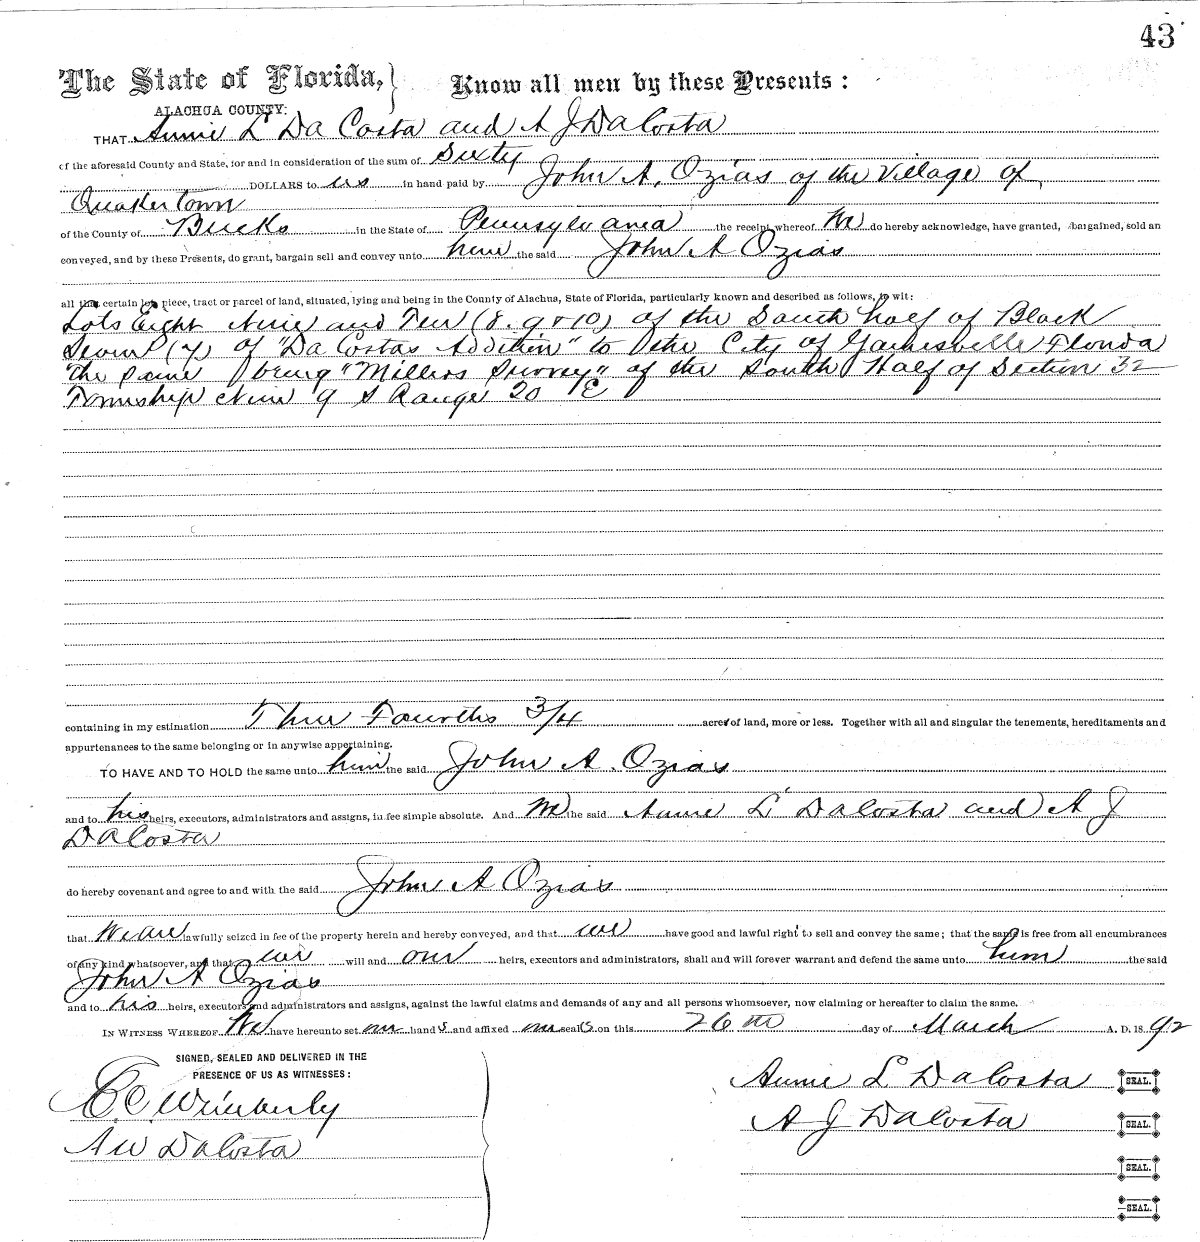 43
The State of Florida, } Know all men by these Presents :
ALACHUA COUNTY:
THAT Annie L DaCosta and A J DaCosta
of the aforesaid County and State, for and in consideration of the sum of Sixty
DOLLARS to us in hand paid by John A. Ozias of the Village of
Quakertown
of the County of Bucks in the State of Pennsylvania the receipt whereof We do hereby acknowledge, have granted, bargained, sold an
conveyed, and by these Presents, do grant, bargain sell and convey unto him the said John A Ozias
all that certain lot, piece, tract or parcel of land, situated, lying and being in the County of Alachua, State of Florida, particularly known and described as follows, to wit:
Lots Eight Nine and Ten (8. 9 & 10) of the South half of Block
Seven (7) of "Da Costas Addition" to the City of Gainesville Florida
the same being "Millers Survey" of the South Half of Section 32
Township Nine 9 S Range 20 E
containing in my estimation Three Fourths 3/4 acres of land, more or less. Together with all and singular the tenements, hereditaments and
appurtenances to the same belonging or in anywise appertaining.
TO HAVE AND TO HOLD the same unto him the said John A. Ozias
and to his heirs, executors, administrators and assigns, in fee simple absolute. And We the said Annie L DaCosta and A J
DaCosta
do hereby covenant and agree to and with the said John A Ozias
that We are lawfully seized in fee of the property herein and hereby conveyed, and that we have good and lawful right to sell and convey the same; that the same is free from all encumbrances
of any kind whatsoever, and that we will and our heirs, executors and administrators, shall and will forever warrant and defend the same unto him the said
John A Ozias
and to his heirs, executors and administrators and assigns, against the lawful claims and demands of any and all persons whomsoever, now claiming or hereafter to claim the same.
IN WITNESS WHEREOF We have hereunto set our hands and affixed our seals on this 26th day of March A. D. 1892
SIGNED, SEALED AND DELIVERED IN THE
PRESENCE OF US AS WITNESSES:
C. C. Wimberly
A W DaCosta
Annie L DaCosta SEAL.
A J DaCosta SEAL.
SEAL.
SEAL.